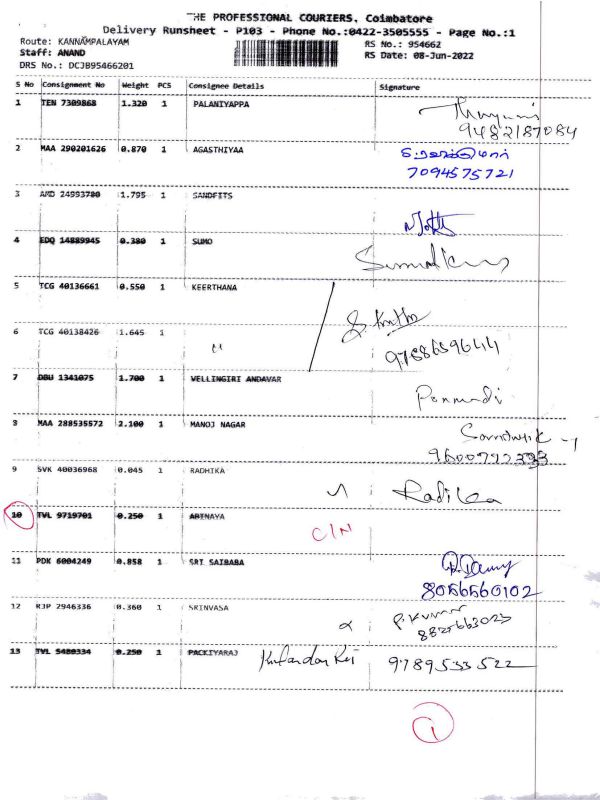 THE PROFESSIONAL COURIERS, Coimbatore
Delivery Runsheet - P103 - Phone No.:0422-3505555 - Page No.:1
Route: KANNAMPALAYAM RS No.: 954662
Staff: ANAND RS Date: 08-Jun-2022
DRS No.: DCJB95466201
S No Consignment No Weight PCS Consignee Details Signature
1 TEN 7309868 1.320 1 PALANIYAPPA
9482187084
2 MAA 290201626 0.870 1 AGASTHIYAA
7094575721
3 AMD 24993780 1.795 1 SANDFITS
4 EDQ 14889945 0.380 1 SUMO
5 TCG 40136661 0.550 1 KEERTHANA
6 TCG 40138426 1.645 1 "
9788659644
7 DBU 1341075 1.700 1 VELLINGIRI ANDAVAR
8 MAA 288535572 2.100 1 MANOJ NAGAR
9 SVK 40036968 0.045 1 RADHIKA Radika
10 TVL 9719701 0.250 1 ABINAYA C/N
11 PDK 6004249 0.858 1 SRI SAIBABA
8056560102
12 RJP 2946336 0.360 1 SRINVASA P. Kumar
13 TVL 5480334 0.250 1 PACKIYARAJ 9789533522
1